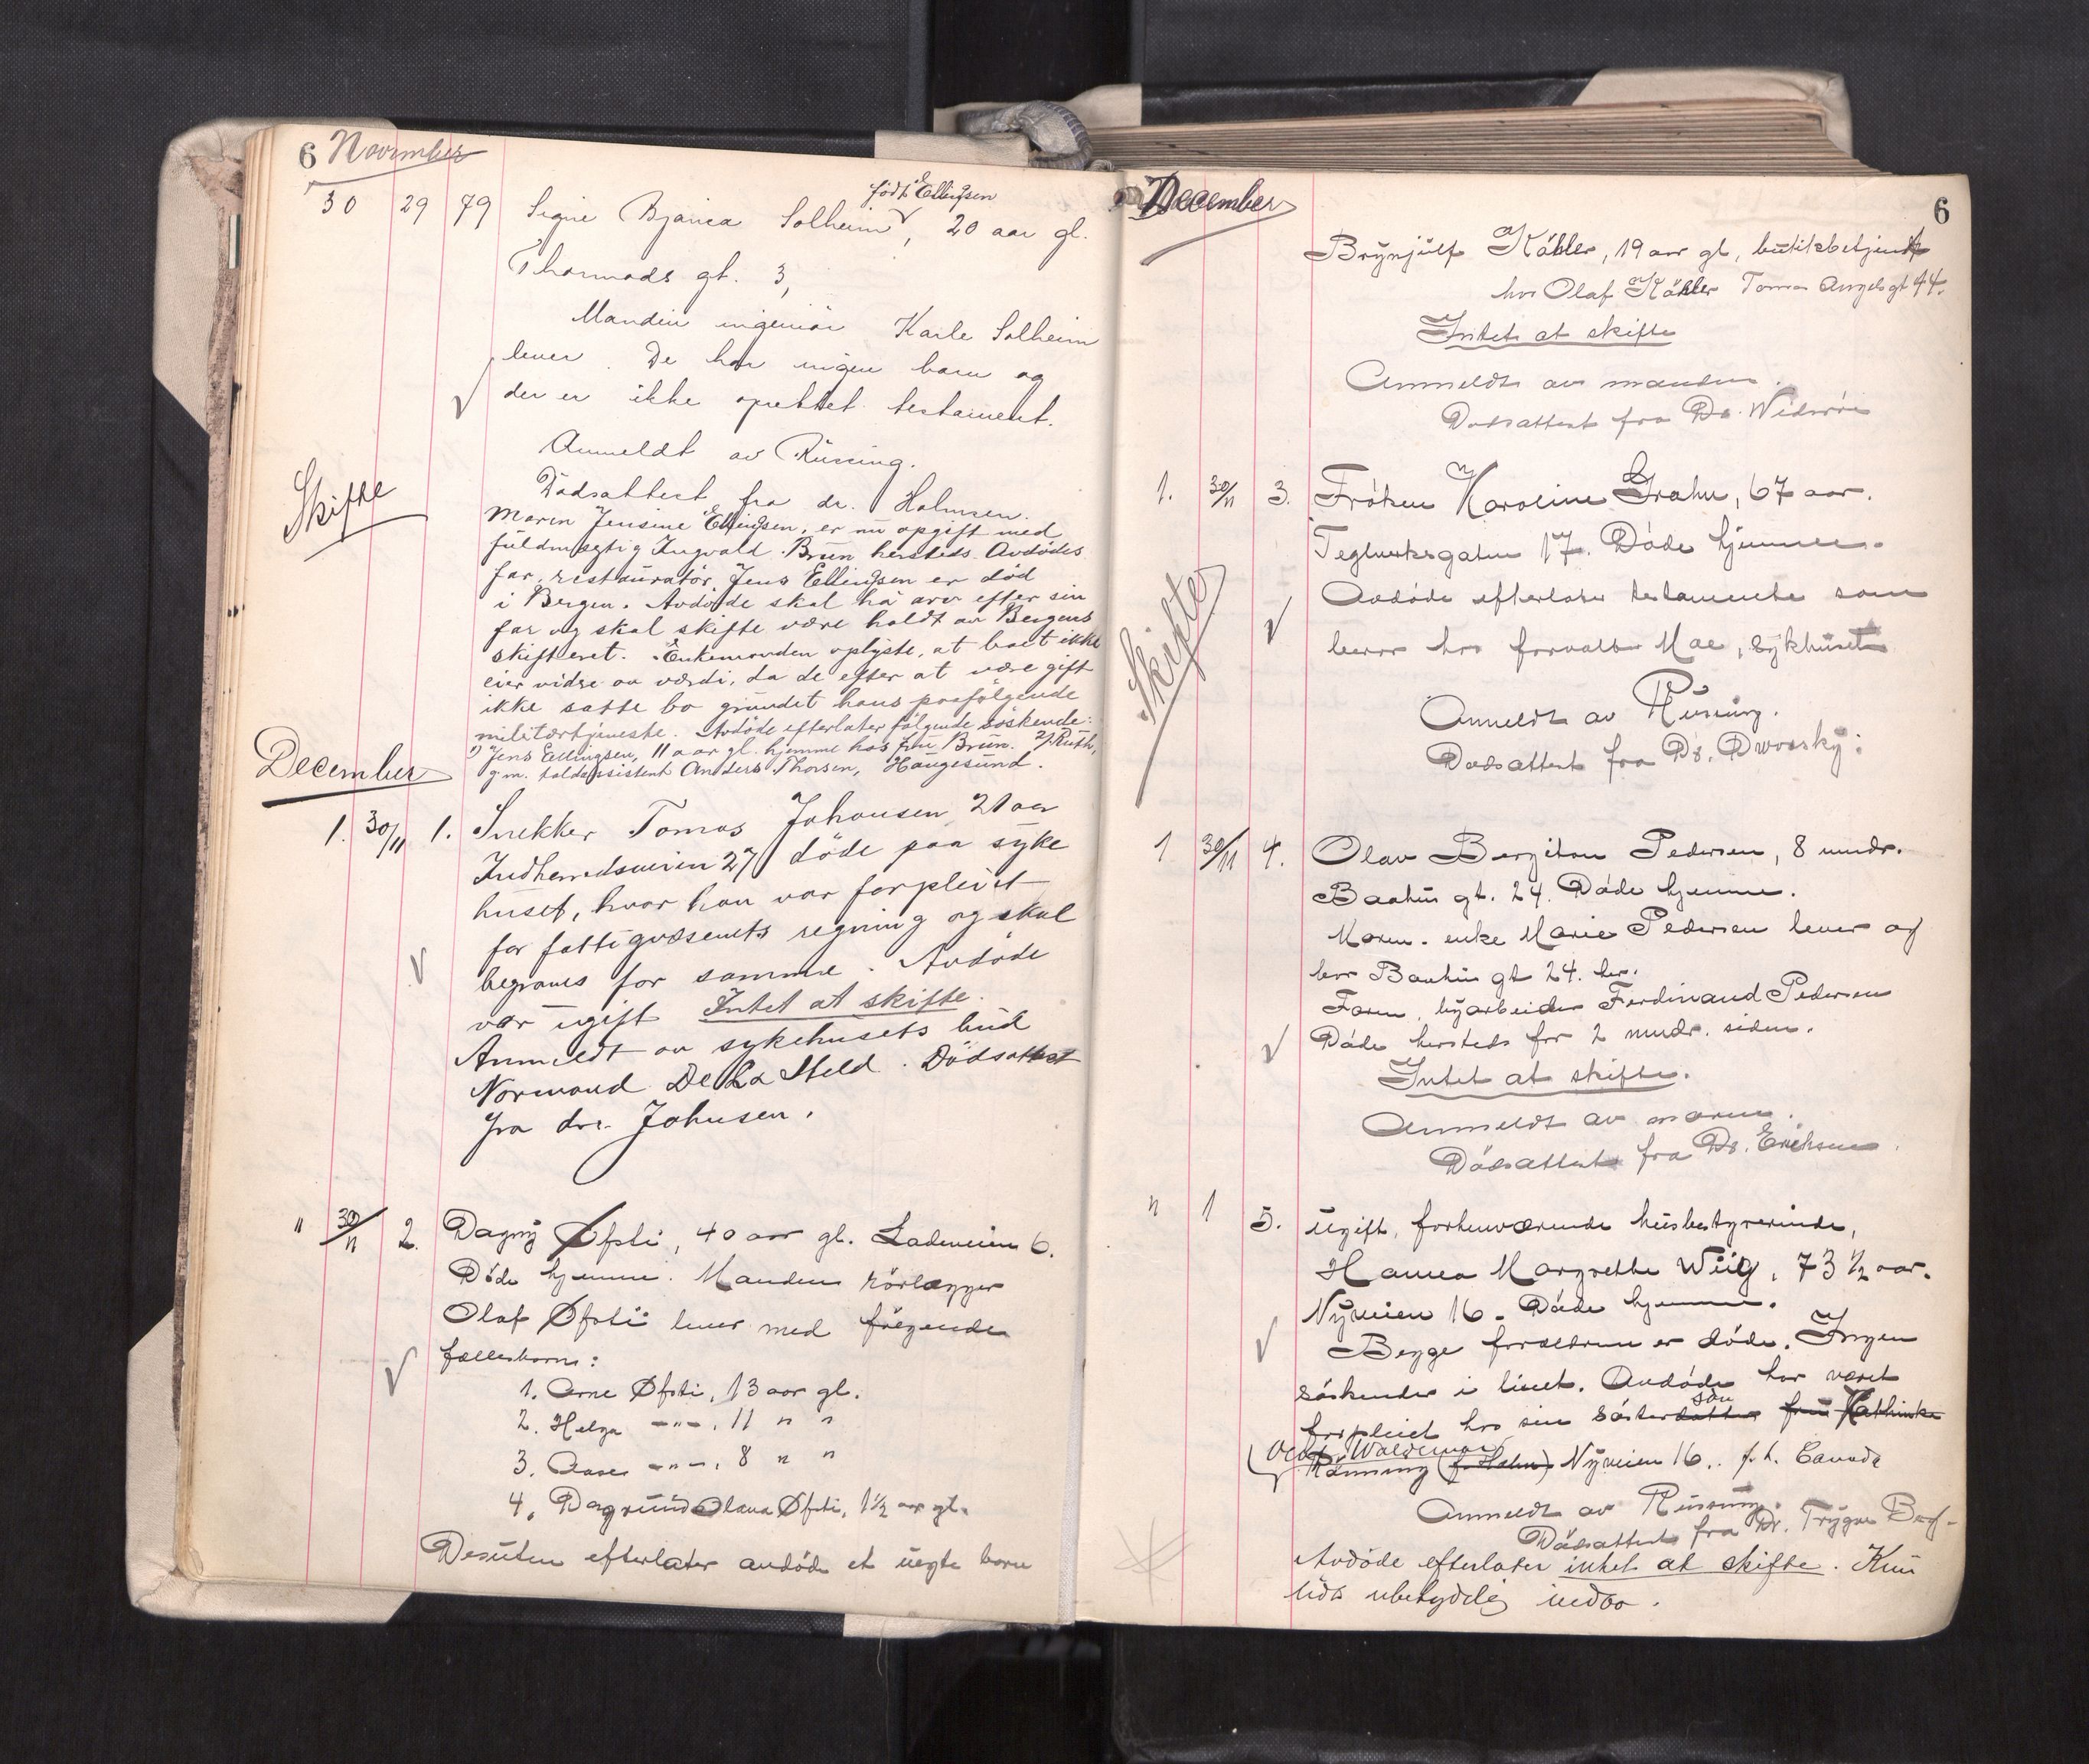 6 November
30 29 79 Signe Bjarica Solheim, født Ellingsen 20 aar gl.
Thormods gt. 3,
Manden ingeniør Karle Solheim
lever. De har ingen barn og
der er ikke oprettet testament.
Anmeldt av Rüsing.
Dødsattest fra dr. Holmsen.
Skifte
Moren Jensine Ellingsen, er nu opgift med
fuldmegtig Ingvald Brun hersteds. Avdødes
far, restauratør Jens Ellingsen er död
i Bergen. Avdöde skal ha arv efter sin
far og skal skifte være holdt av Bergens
skifteret. Enkemanden oplyste, at boet ikke
eier vidre av værdi, da de efter at være gift
ikke satte bo grundet hans paafölgende
militærtjeneste. Avdöde efterlater fölgende söskende:
1) Jens Ellingsen, 11 aar gl. hjemme hos fru Brun. 2) Ruth,
g.m. toldassistent Anders Thorsen, Haugesund.
December
1. 30/11 1. Snekker Tomas Johansen 21 aar
Indherredsveien 27 döde paa syke
huset, hvor han var forpleiet
for fattigvæsenets regning og skal
begraves for samme. Avdöde
var ugift Intet at skifte.
Anmeldt av sykehusets bud
Normand De La Held. Dödsattest
fra dr. Johnsen.
" 30/11 2. Dagny Øfsti, 40 aar gl. Ladeveien 6.
Döde hjemme. Manden rörlægger
Olaf Øfsti lever med følgende
fællesbarn:
1. Arne Øfsti, 13 aar gl.
2. Helga —"—, 11 " "
3. Aase —"—, 8 " "
4. Dagrund Olava Øfsti, 1½ aar gl.
Desuten efterlater avdöde et uegte barn
December 6
Brynjulf Köhler, 19 aar gl, butikbetjent
hos Olaf Köhler Tomas Angels gt 44.
Intet at skifte
Anmeldt av manden.
Dødsattest fra Dr. Widerøe
1. 30/11 3. Fröken Karoline Grahn, 67 aar.
Teglverksgaten 17. Döde hjemme.
Skifte
Avdöde efterlater testamente som
beror hos forvalter Moe, sykhuset
Anmeldt av Rüsing.
Dødsattest fra Dr. Dworsky.
1 30/11 4. Olav Bergiton Pedersen, 8 mndr.
Baahus gt. 24. Döde hjemme.
Moren. enke Marie Pedersen lever og
bor Baahus gt 24. her.
Faren, byarbeider Ferdinand Pedersen
Döde hersteds for 2 mndr. siden.
Intet at skifte.
Anmeldt av moren.
Dödsattest fra Dr. Erichsen.
" 1 5. Ugift, forhenværende husbestyrerinde,
Hanna Margrethe Wiig, 73 ½ aar.
Nyveien 16. Döde hjemme.
Begge forældrene er döde. Ingen
söskender i livet. Avdöde har været
forpleiet hos sin Søsterdatter sön fru Kathinka
Oluf Waldemar
Rønning (f. Hahn) Nyveien 16. f. t. Canada
Anmeldt av Rüsing.
Dödsattest fra Dr. Trygve Berg.
Avdöde efterlater intet at skifte. Kun
lidt ubetydelig indbo.